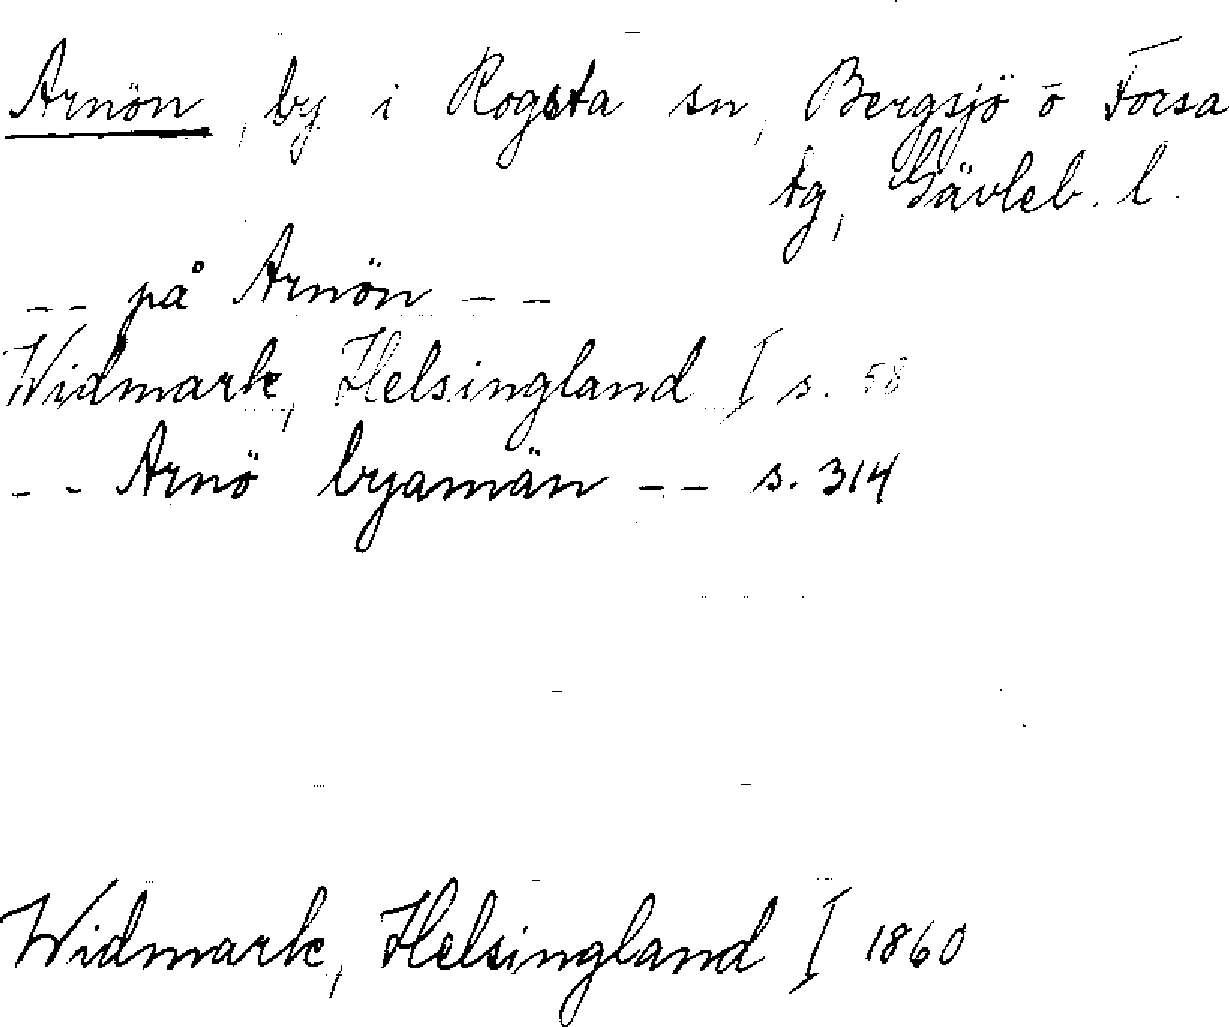 Arnön, by i Rogsta sn, Bergsjö o Forsa
tg, Gävleb. l.
-- på Arnön --
Widmark, Helsingland I s. 58
-- Arnö byamän -- s. 314
Widmark, Helsingland I 1860